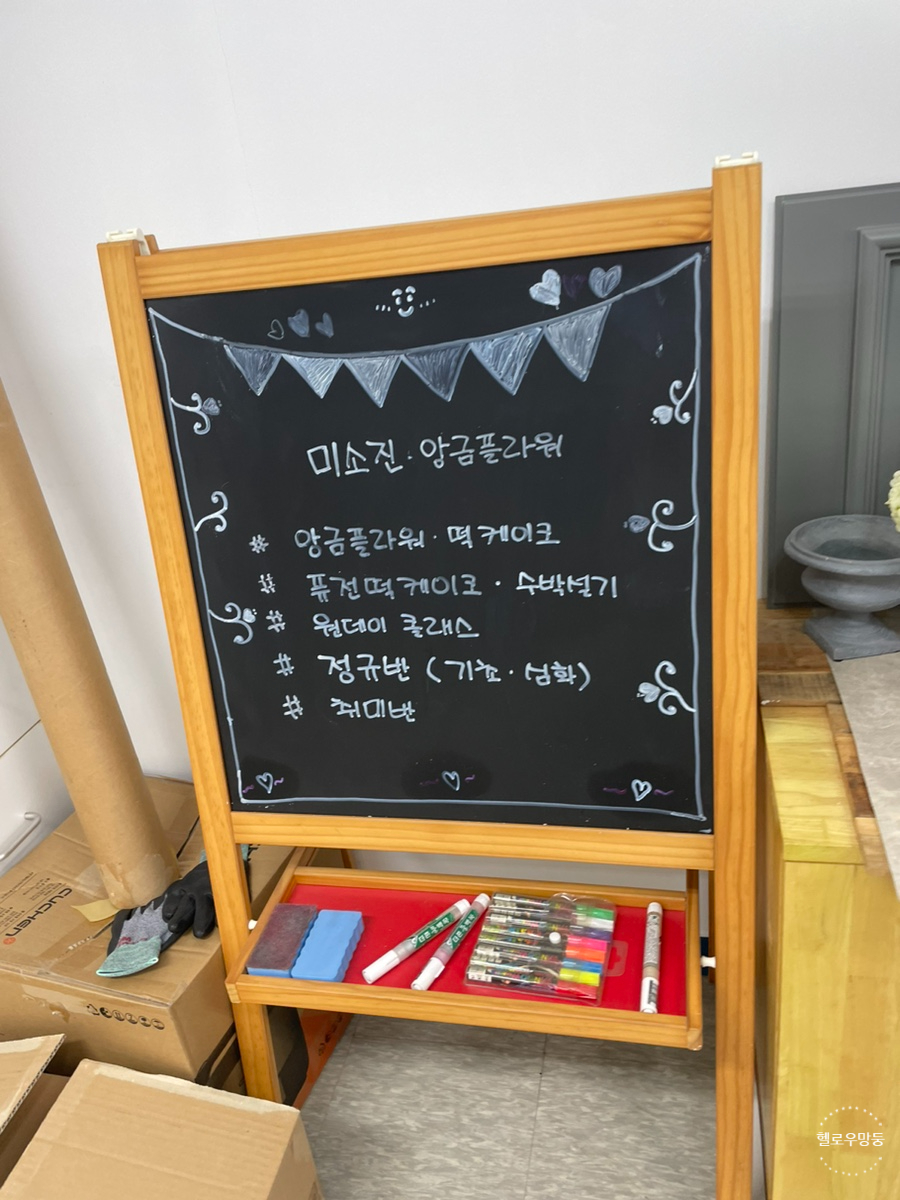 미소진·앙금플라워
# 앙금플라워·떡케이크
# 퓨전떡케이크·수박설기
# 원데이 클래스
# 정규반 (기초·심화)
# 취미반
CUCHEN
헬로우망둥